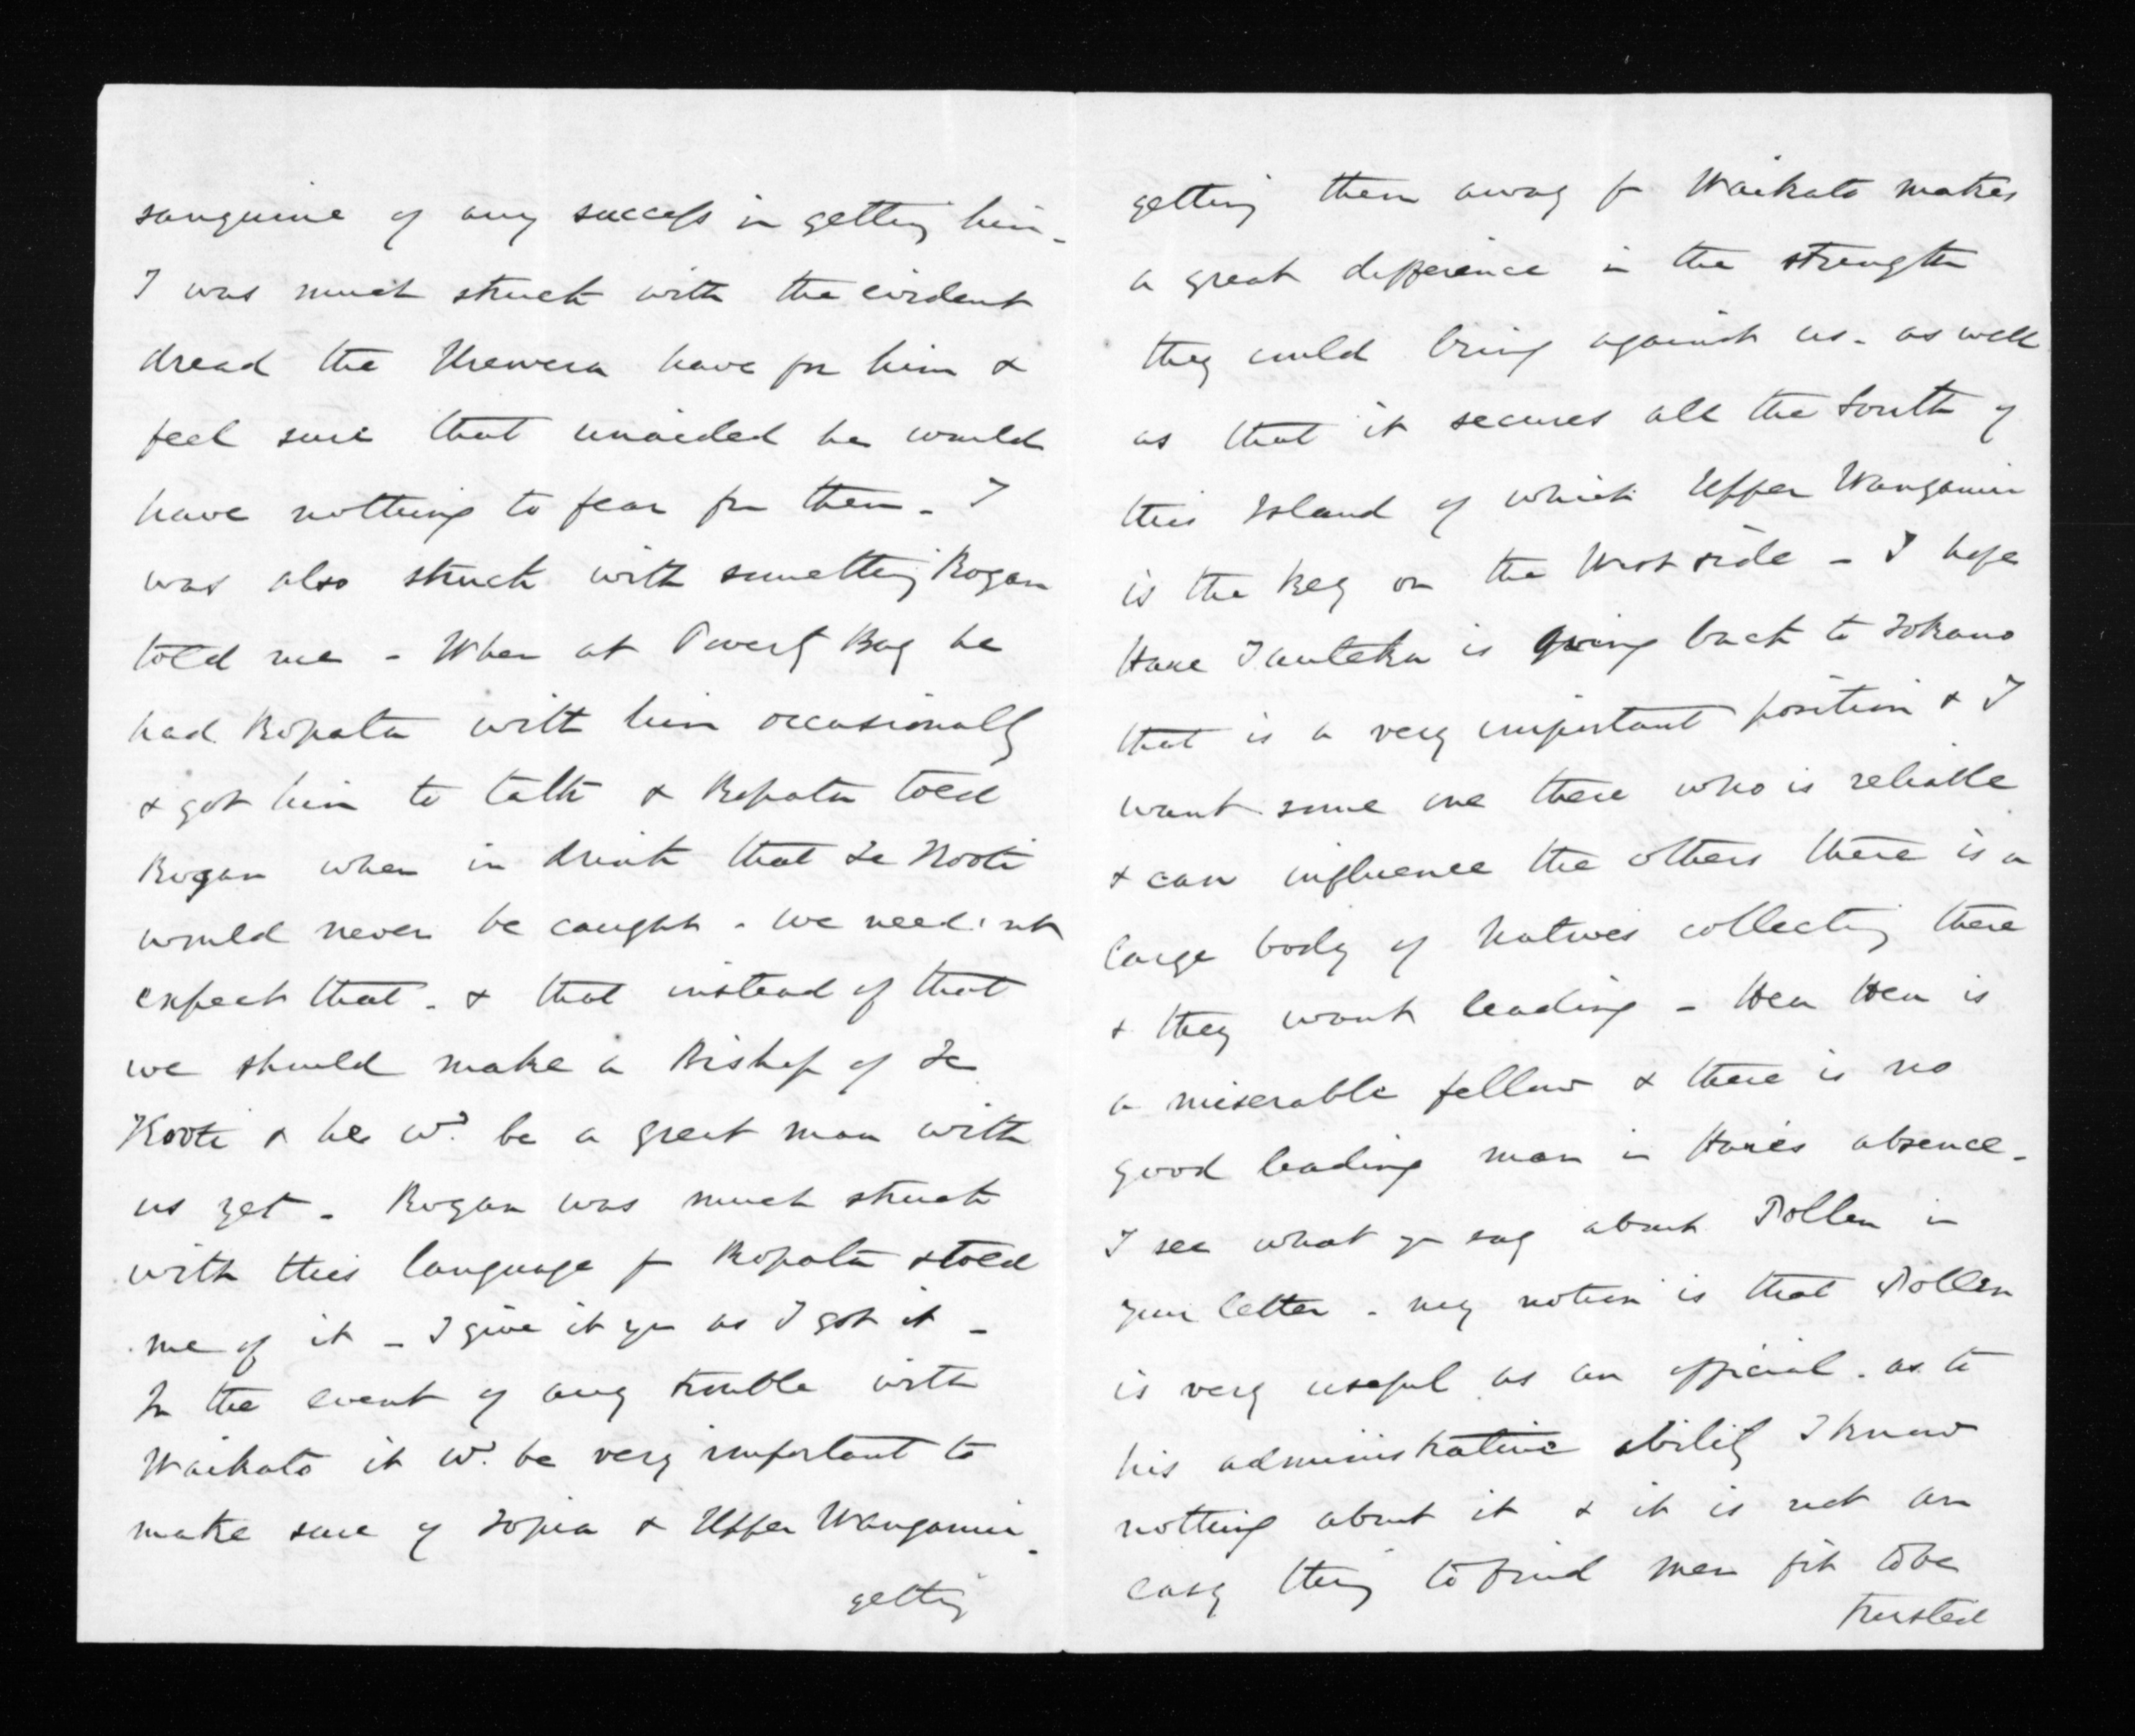 sanguine of any success in getting him -
I was much struck with the evident
dread the Urewera have for him &
feel sure that unaided he would
have nothing to fear fm them - I
was also struck with something Rogan
told me - When at Poverty Bay he
had Ropata with him occasionally
& got him to talk & Ropata told
Rogan when in drink that Te Kooti
would never be caught - we need not
expect that - & that instead of that
we should make a Bishop of Te
Kooti & he wd. be a great man with
us yet - Rogan was much struck
with this language fr Ropata & told
me of it - I give it yu as I got it -
In the event of any trouble with
Waikato it wd. be very important to
make sure of Topia & Upper Wanganui -
getting
getting them away fr Waikato makes
a great difference in the strength
they could bring against us - as well
as that it secures all the South of
this Island of which Upper Wanganui
is the key on the West side - I hope
Hare Tauteka is going back to Tokano
that is a very important position & I
want some one there who is reliable
& can influence the others there is a
large body of Natives collecting there
& they want leading - Heu Heu is
a miserable fellow & there is no
good leading man in Hare's absence -
I see what yu say about Pollen in
your letter - my notion is that Pollen
is very useful as an official - as to
his administrative ability I know
nothing about it & it is not an
easy thing to find men fit to be
trusted